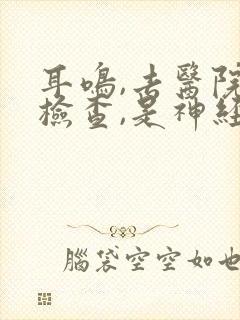 耳鳴,去醫院
檢查,是神經
腦袋空空如也